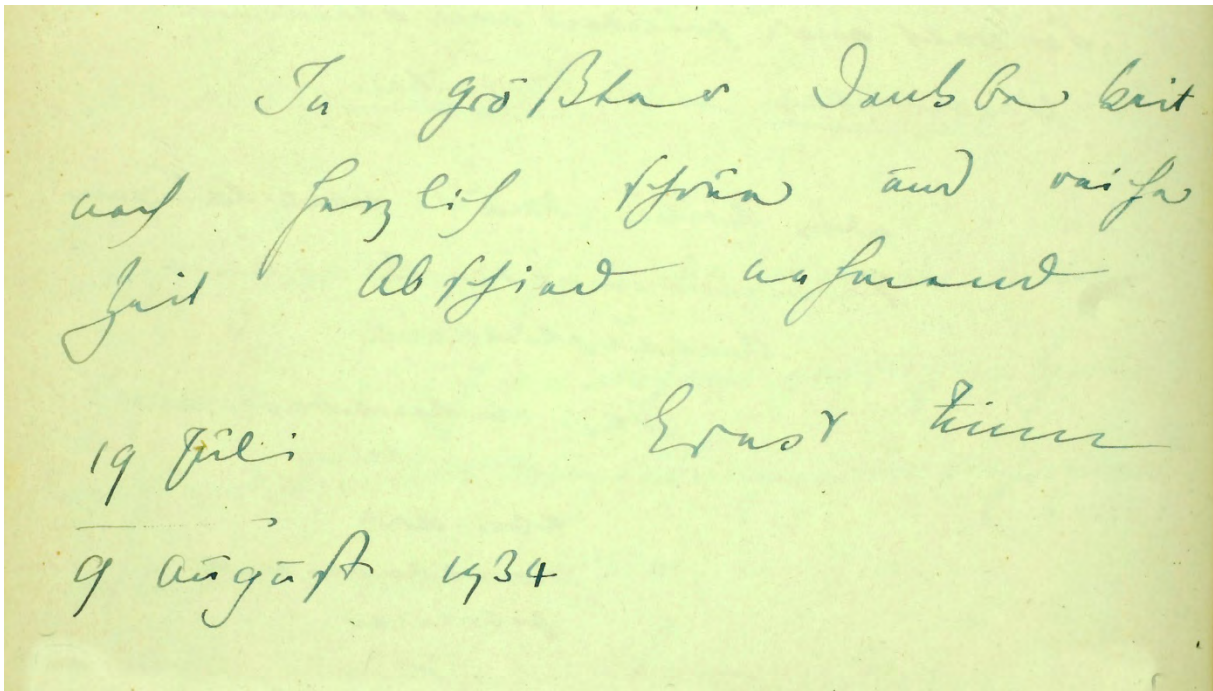 In größter Dankbarkeit
nach herzlich schöner und reicher
Zeit Abschied nehmend
Ernst
19 Juli
9 August 1934